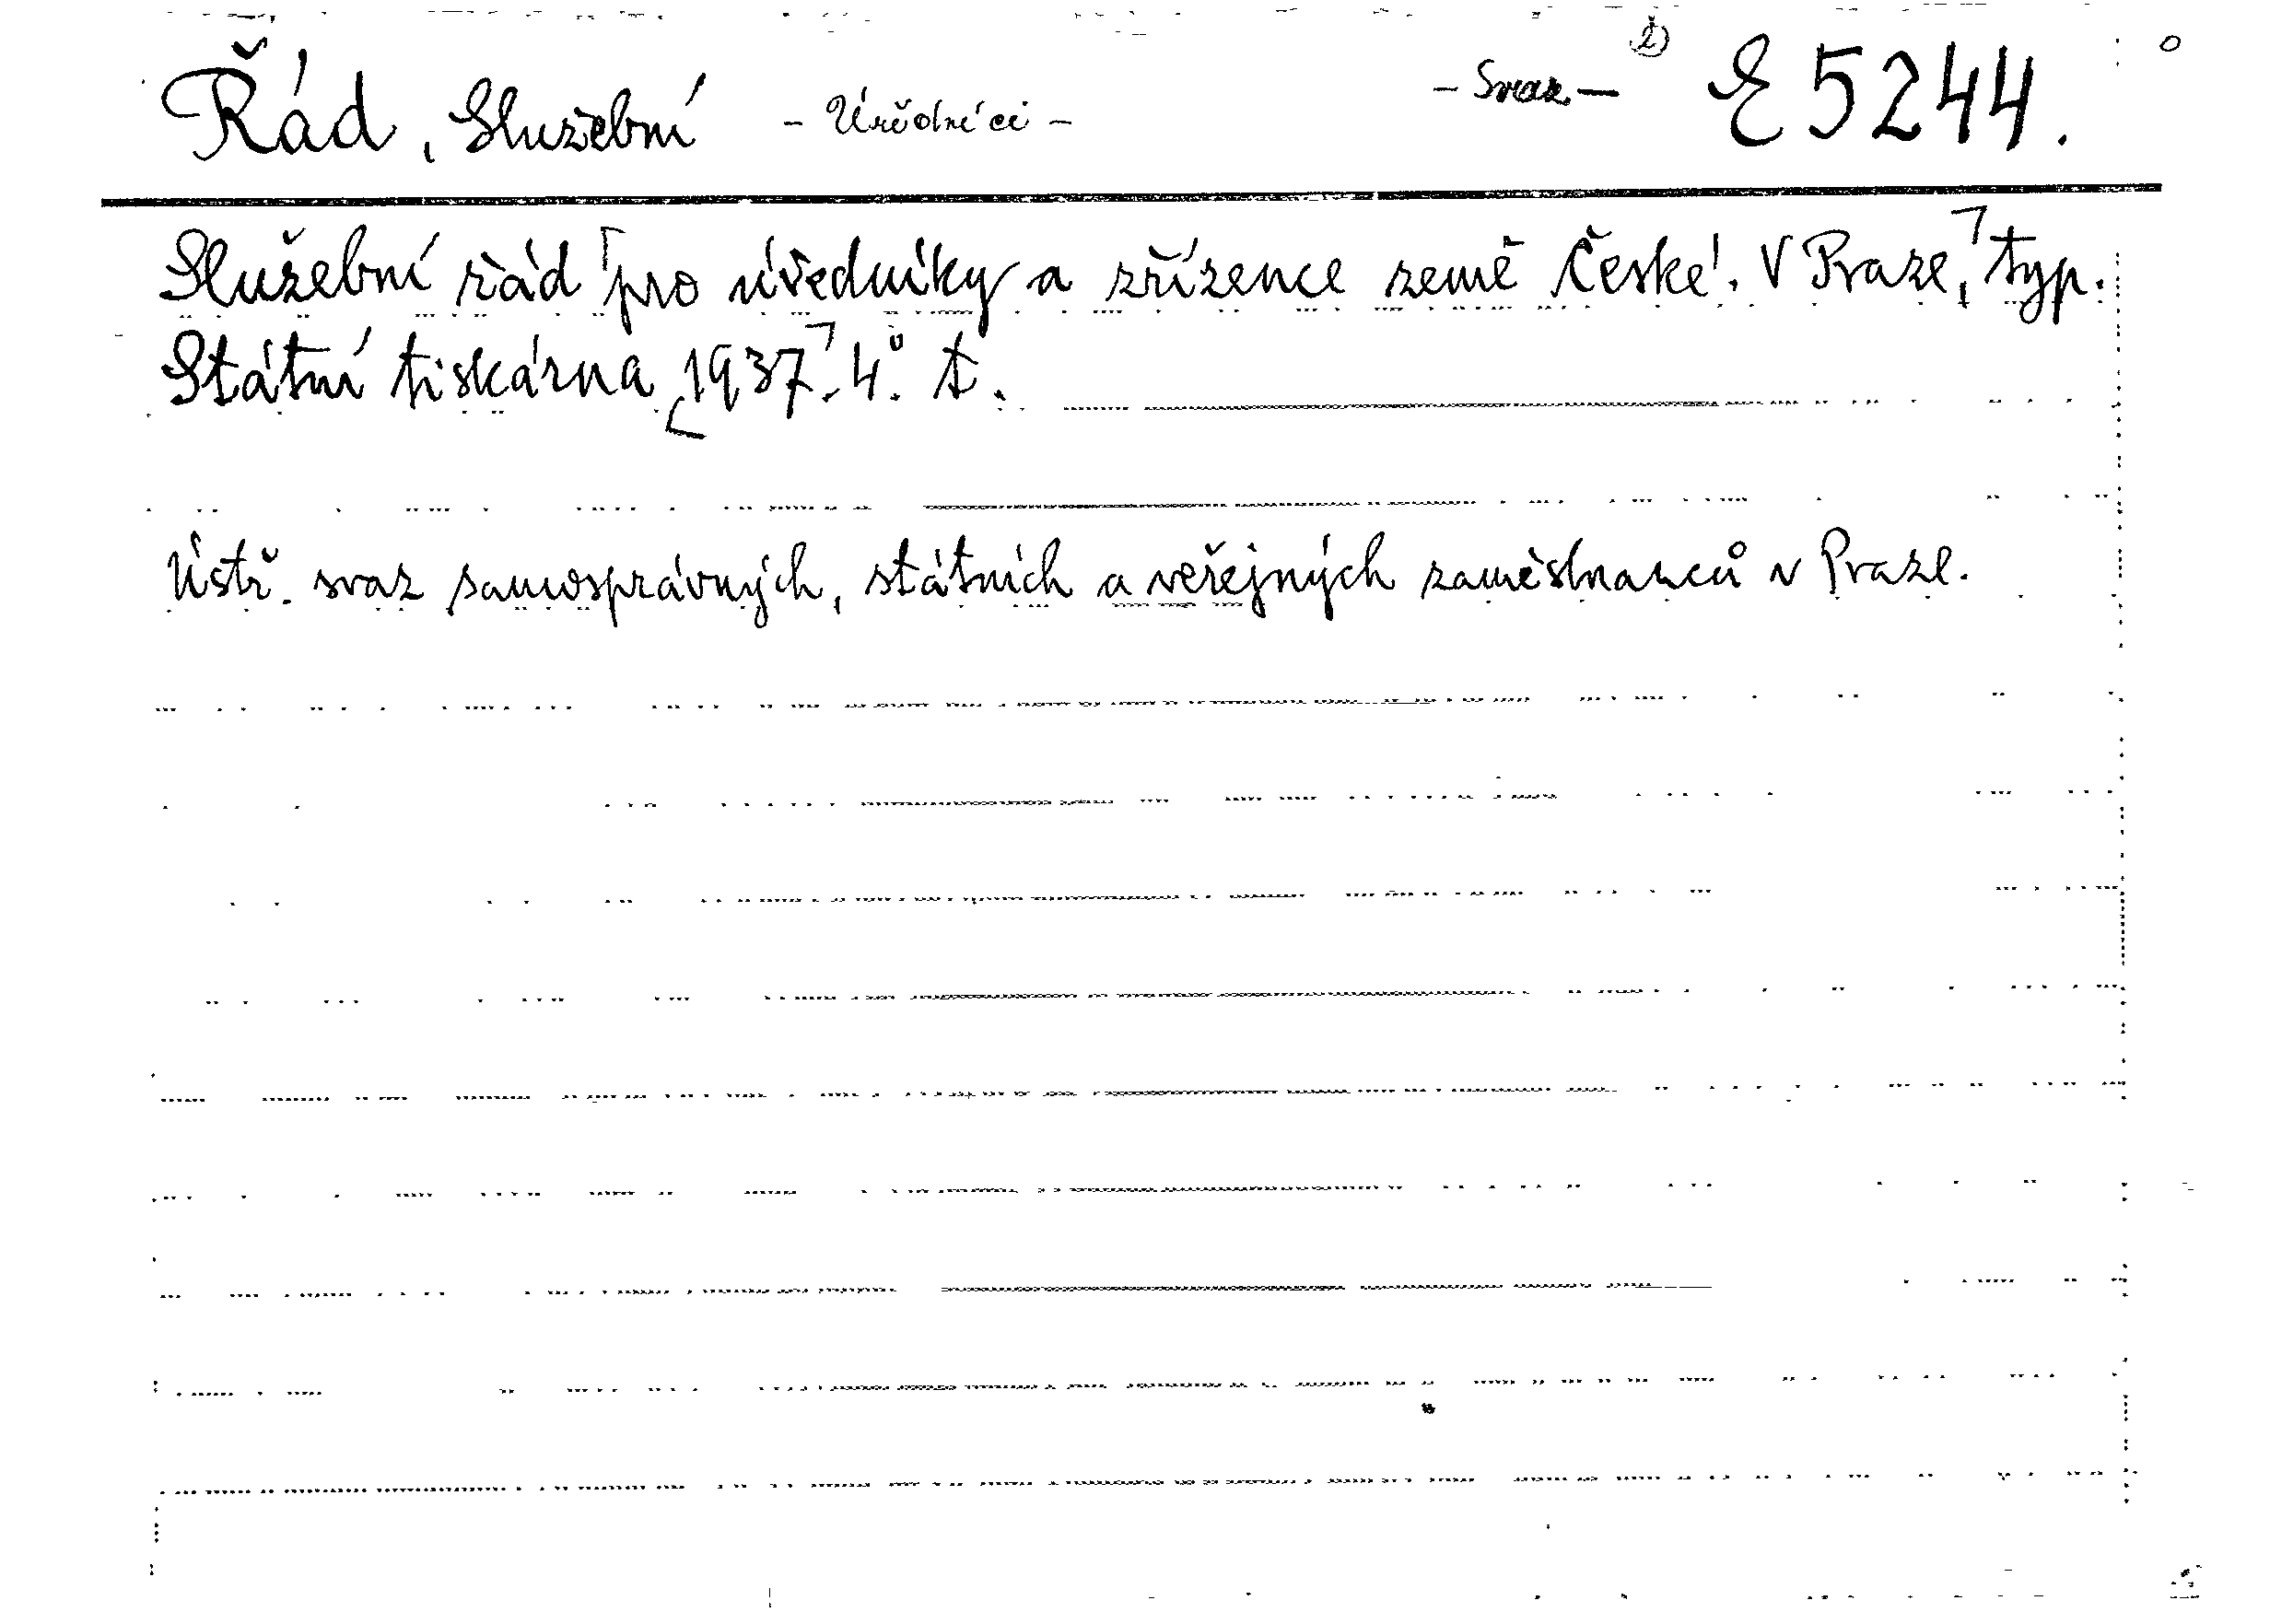 Řád, Služební - Úředníci - - Svaz - E 5244.
Služební řád ⌈pro úředníky a zřízence země České. V Praze,⌉ typ.
Státní tiskárna ⌊1937⌉. 4°. t.
Ústř. svaz samosprávných, státních a veřejných zaměstnanců v Praze.